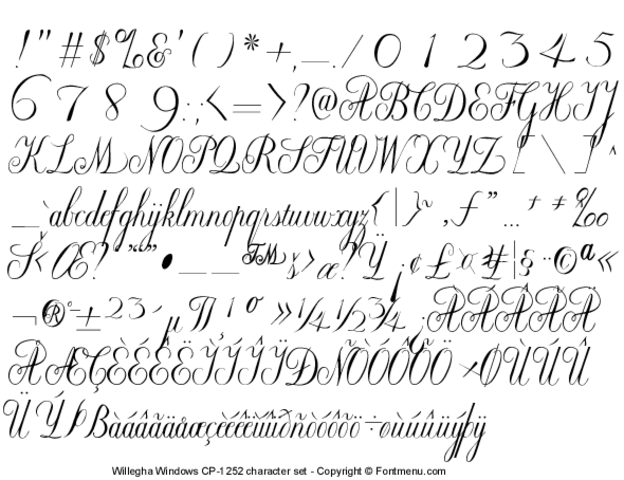 !"#$%&'()*+,_./012345
6789:;<=>?@ABCDEFGHIJ
KLMNOPQRSTUVWXYZ[\]^
_`abcdefghijklmnopqrstuvwxyz{|}~‚ƒ„…†‡‰
Š‹Œ?‘’“”•__™š›œ?Ÿ¡¢£¤¥¦§¨©ª«
¬®¯°±²³´µ¶¹º»¼½¾¿ÀÁÂÃÄ
ÅÆÇÈÉÊËÌÍÎÏÐÑÒÓÔÕÖ×ØÙÚÛ
ÜÝÞßàáâãäåæçèéêëìíîïðñòóôõö÷øùúûüýþÿ
Willegha Windows CP-1252 character set - Copyright © Fontmenu.com